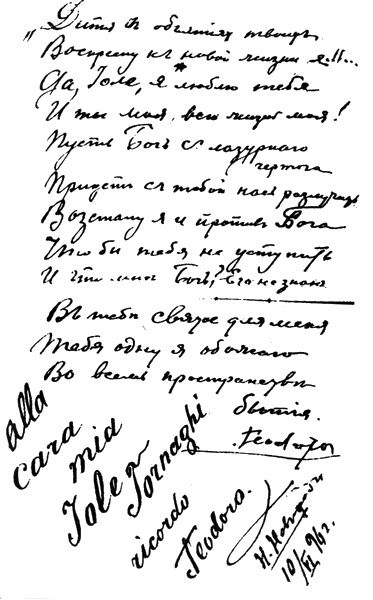 „Дитя въ объятiяхъ твоихъ
Воскресну къ новой жизни я!!..
Да, Iоле, я люблю тебя
И ты моя, весь жизнь моя!
Пусть Богъ съ лазурнаго
чертога
Придетъ съ тобой насъ разлучить
Возстану я и противъ Бога
Что бы тебя не уступить
И что мнѣ Богъ? Его не знаю
Въ тебѣ святое для меня
Тебя одну я обожаю
Во всемъ пространствѣ
бытiя.
Теодоръ
alla
cara
mia
Iole Tornaghi
ricordo
Teodoro.
Н. Новгородъ
10/VI 96 г.